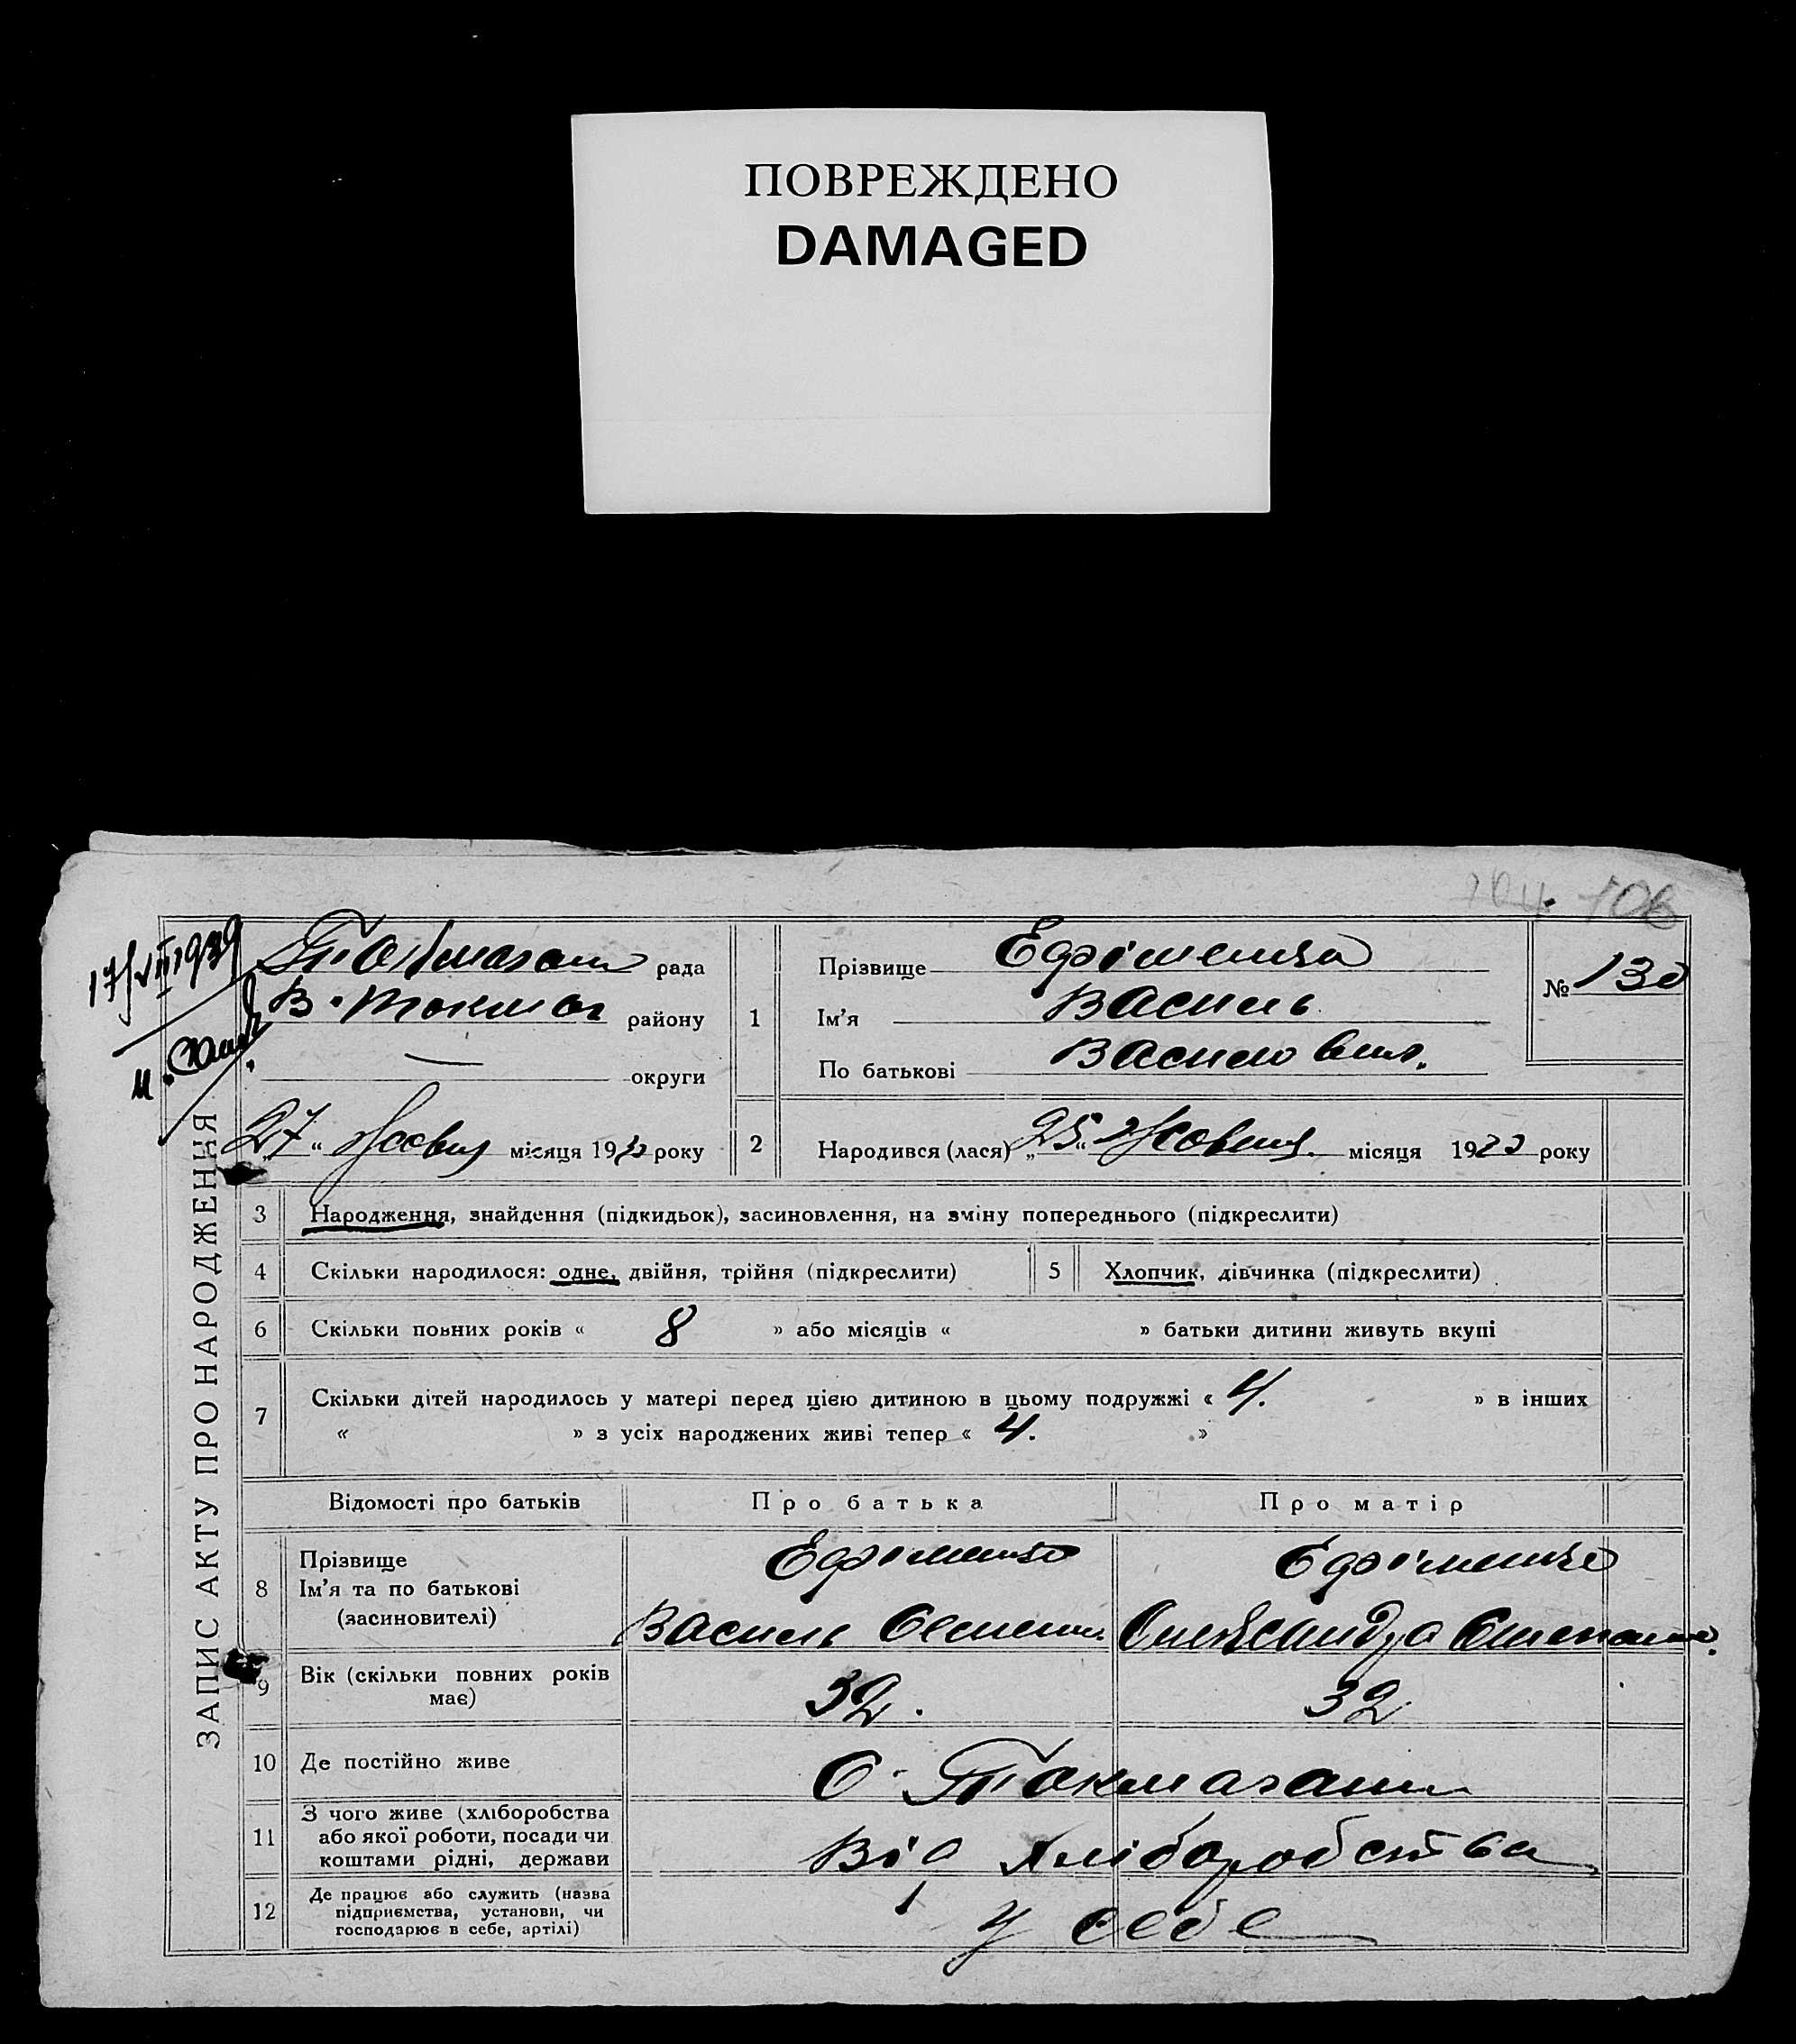 ПОВРЕЖДЕНО
DAMAGED
106
17/VIII 1939
рада
В. Токмак району
— округи
„27“ Жовтня місяця 193 року
1
Прізвище Єфіменко
Ім'я Василь
По батькові Василович.
№ 130
2
Народився (лася) „25“ Жовтня місяця 19 року
ЗАПИС АКТУ ПРО НАРОДЖЕННЯ
3 Народження, знайдення (підкидьок), засиновлення, на зміну попереднього (підкреслити)
4 Скільки народилося: одне, двійня, трійня (підкреслити)
5 Хлопчик, дівчинка (підкреслити)
6 Скільки повних років « 8 » або місяців « » батьки дитини живуть вкупі
7 Скільки дітей народилось у матері перед цією дитиною в цьому подружжі « 4. » в інших
« » з усіх народжених живі тепер « 4. »
Відомості про батьків
Про батька
Про матір
8 Прізвище
Ім'я та по батькові
(засиновителі)
Єфіменко
Василь Семен.
Єфіменко
Олександра Степан.
9 Вік (скільки повних років
має)
32.
32
10 Де постійно живе
С.
11 З чого живе (хліборобства
або якої роботи, посади чи
коштами рідні, держави
Від хліборобства
12 Де працює або служить (назва
підприємства, установи, чи
господарює в себе, артілі)
У себе